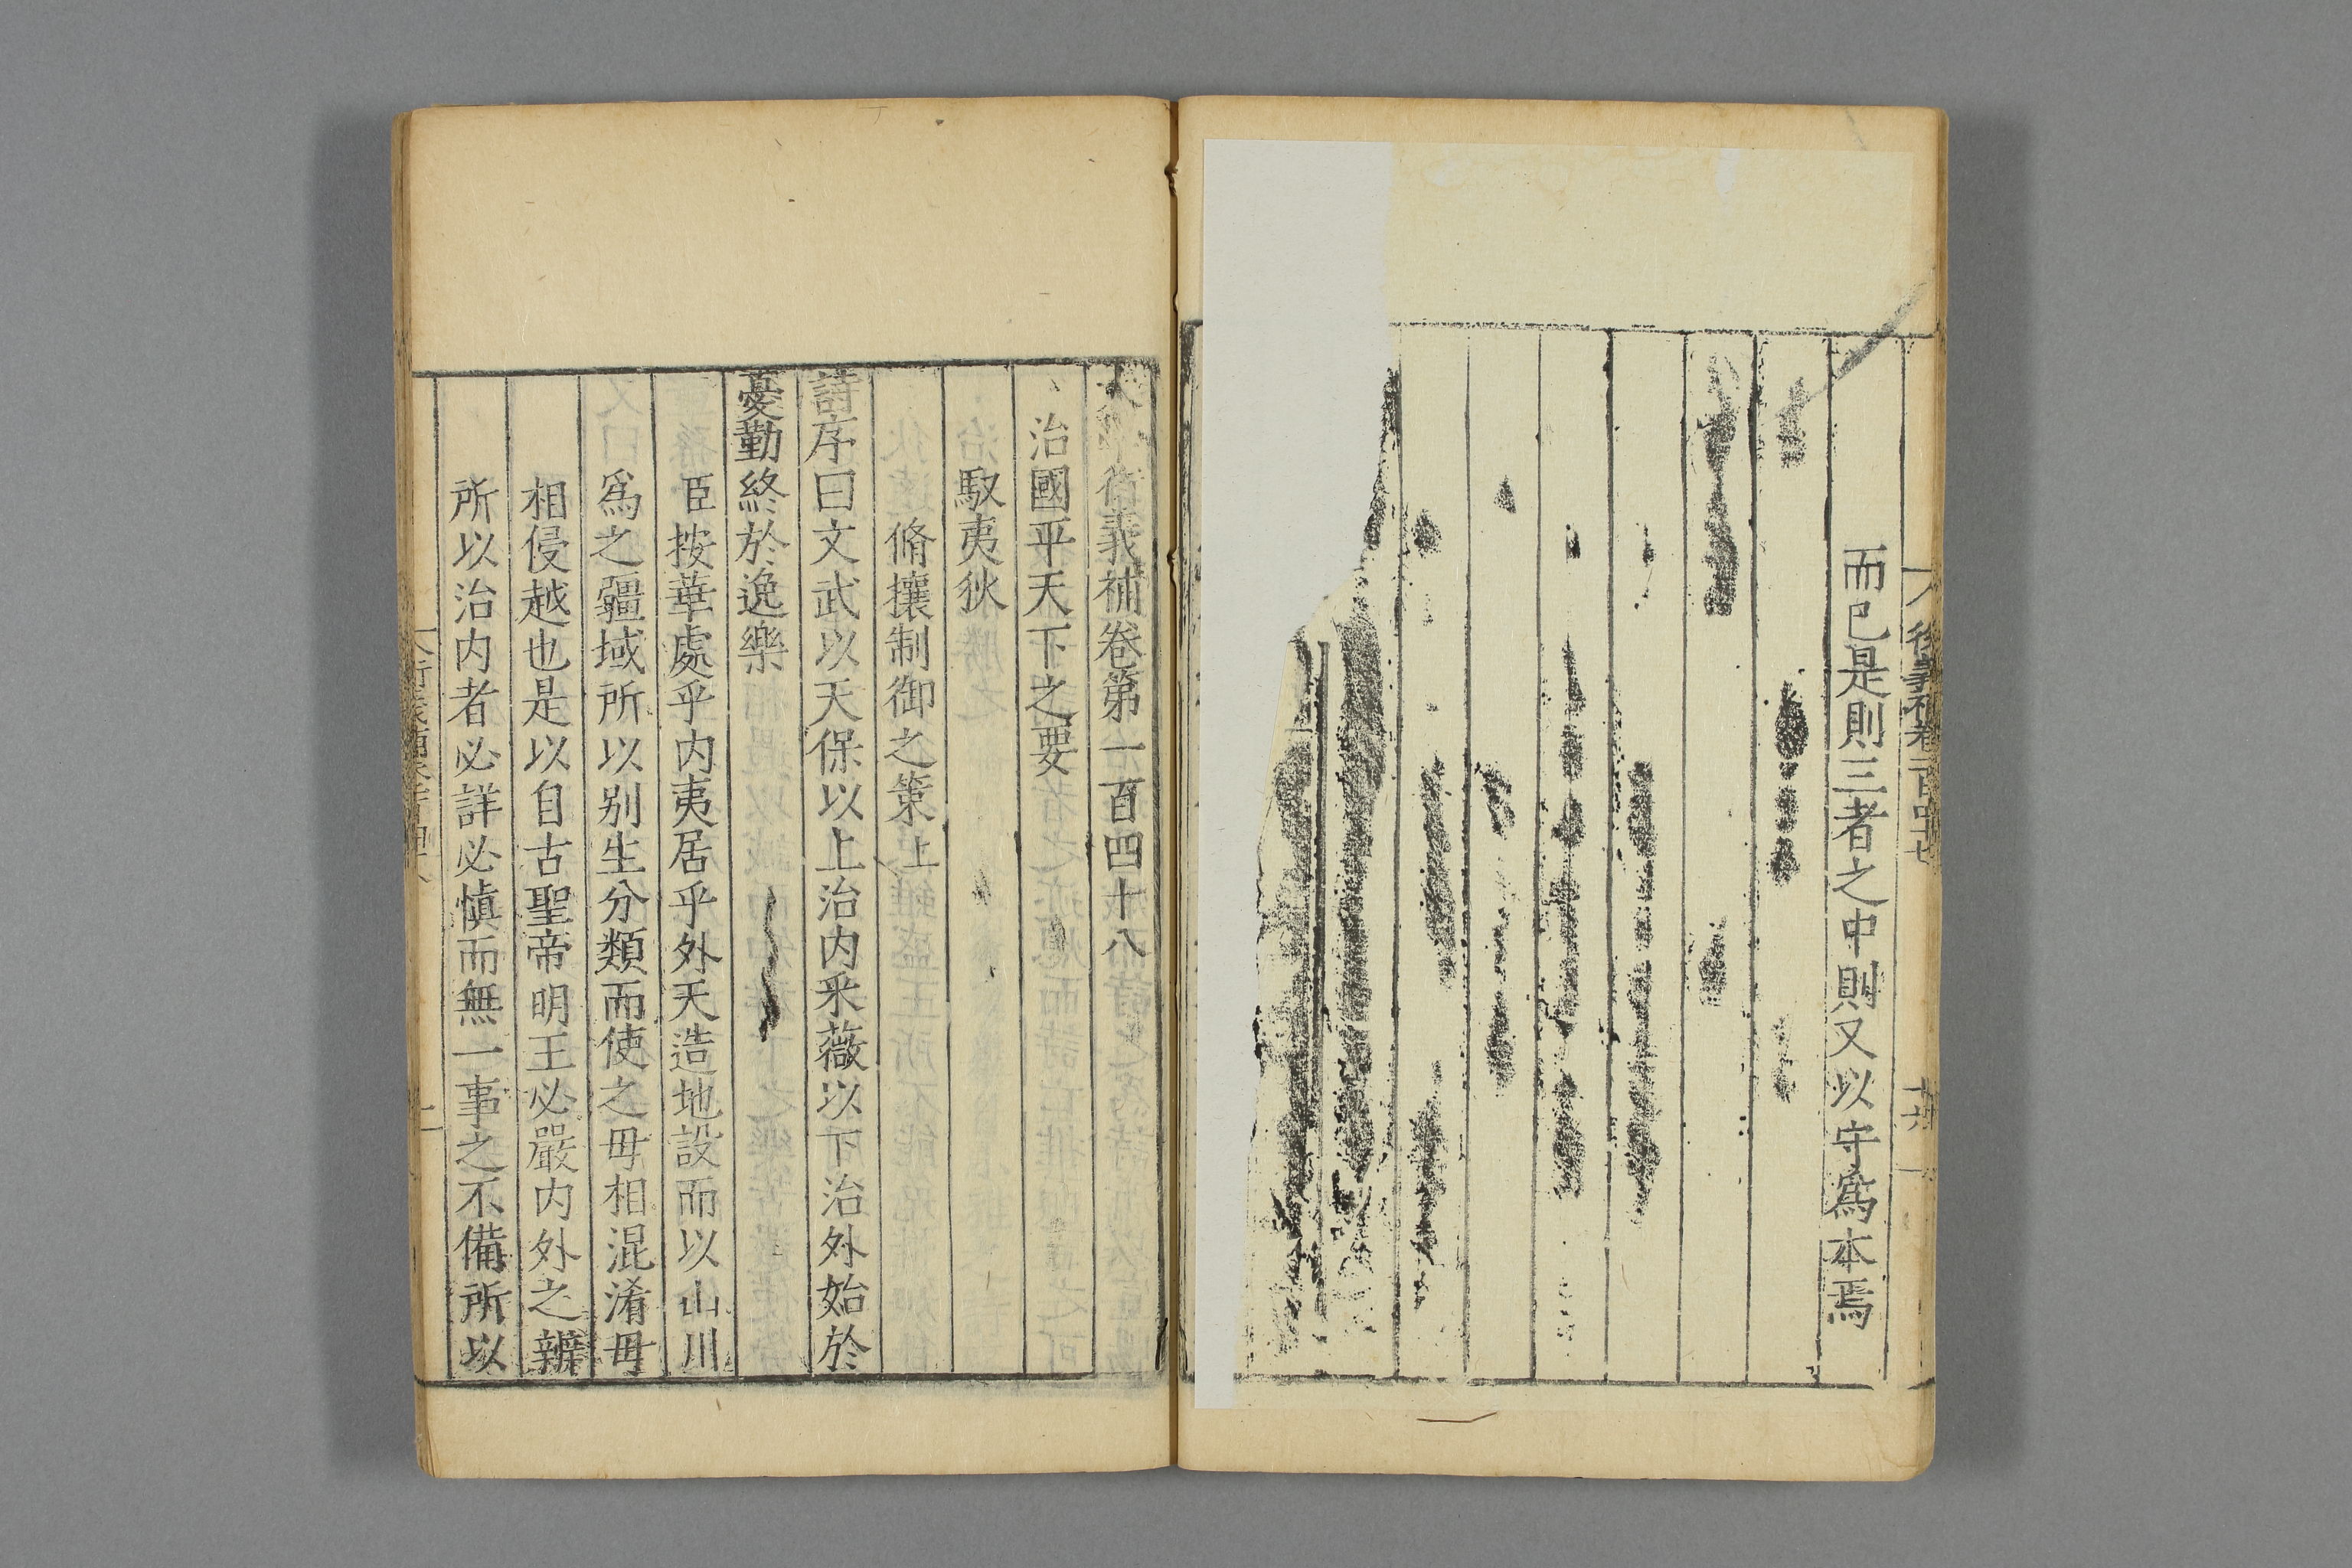 而已是則三者之中則又以守爲本焉
衍義補卷第一百四十八
治國平天下之要
馭夷狄
脩攘制御之策上
詩序曰文武以天保以上治内采薇以下治外始於
憂勤終於逸樂
臣按華處乎内夷居乎外天造地設而以山川
爲之疆域所以别生分類而使之毋相混淆毋
相侵越也是以自古聖帝明王必嚴内外之辨
所以治内者必詳必愼而無一事之不備所以